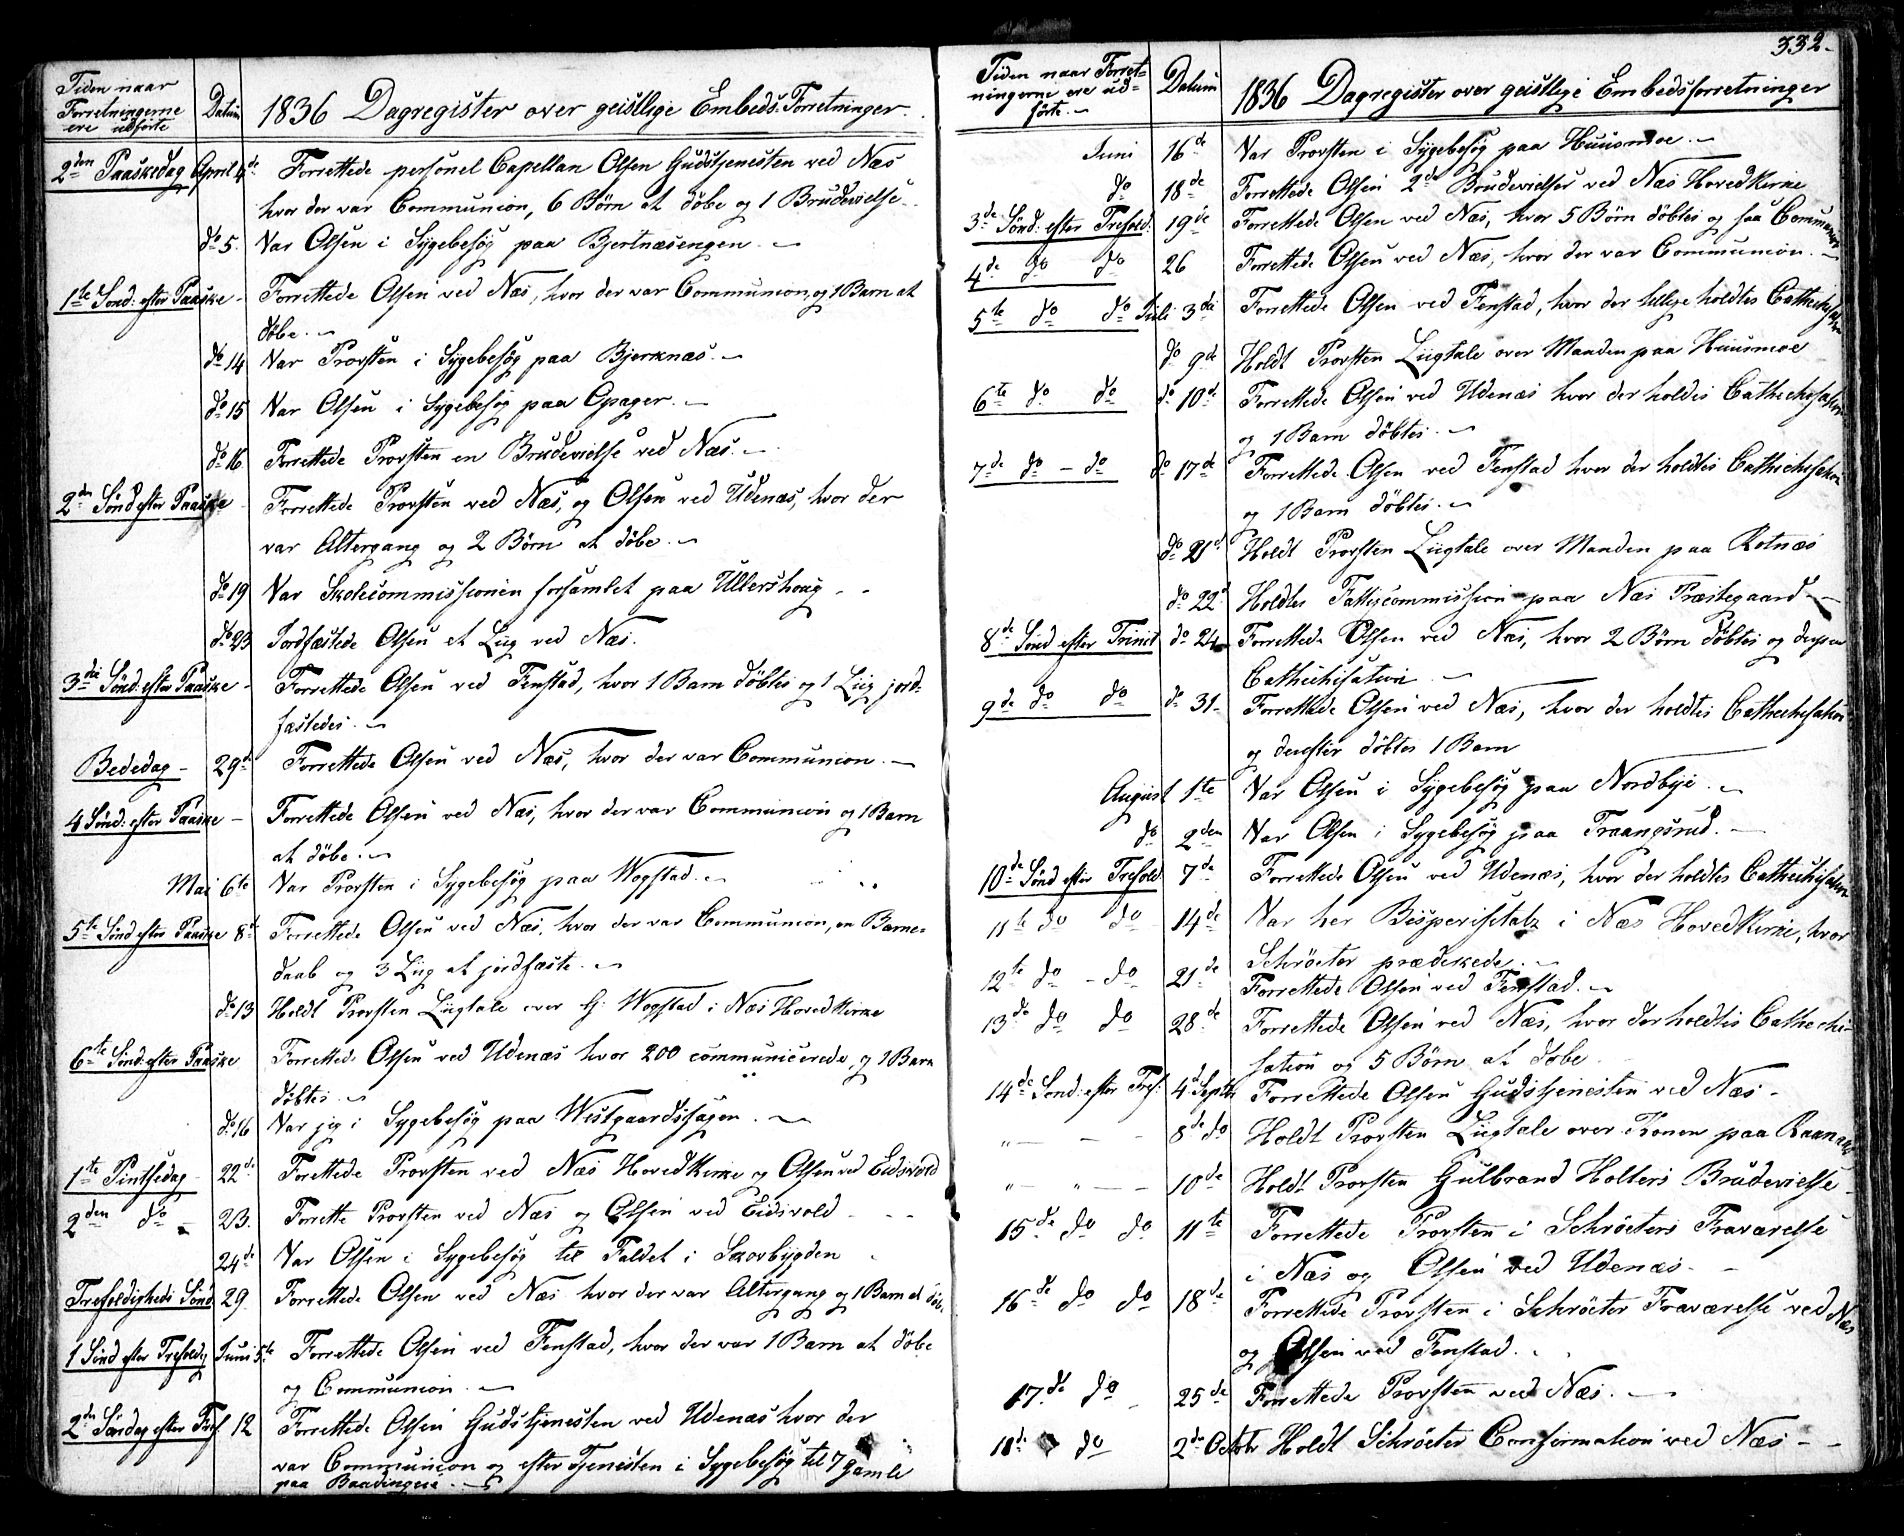 Tiden naar
Forretningerne
ere udførte
Datum
1836 Dagregister over geistlige Embeds.Forretninger.
2den Paaskedag April 4de Forrettede personel Capellan Olsen Gudstjenesten ved Næs
hvor der var Communion, 6 Børn at døbe og 1 Brudevielse.
do 5. Var Olsen i Sygebesøg paa Bjertnæsengen.
1ste Sønd: efter Paaske Forrettede Olsen ved Næs, hvor der var Communion, og 1 Barn at
døbe.
do 14 Var Provsten i Sygebesøg paa Bjerknæs.
do 15 Var Olsen i Sygebesøg paa Opager.
do 16 Forrettede Provsten en Brudevielse ved Næs.
2den Sønd efter Paaske Forrettede Provsten ved Næs, og Olsen ved Udenæs, hvor der
var Altergang og 2 Børn at døbe.
do 19 Var Skolecommissionen forsamlet paa Ullershoug
do 23 Jordfæstede Olsen et Liig ved Næs.
3die Sønd: efter Paaske Forrettede Olsen ved Fenstad, hvor 1 Barn døbtes og 1 Liig jord-
fæstedes.
Bededag 29de Forrettede Olsen ved Næs, hvor der var Communion.
4 Sønd: efter Paaske Forrettede Olsen ved Næs, hvor der var Communion og 1 Barn
at døbe.
Mai 6te Var Provsten i Sygebesøg paa Wogstad.
5te Sønd efter Paaske 8de Forrettede Olsen ved Næs, hvor der var Communion, en Barne-
daab og 3 Liig at jordfæste.
do 13 Holdt Provsten Liigtale over G: Wogstad i Næs HovedKirke
6te Sønd: efter Paaske Forrettede Olsen ved Udenæs hvor 200 communicerede, og 1 Barn
døbtes.
do 16 Var jeg i Sygebesøg paa Westgaardshagen.
1ste Pintsedag 22de Forettede Provsten ved Næs HovedKirke og Olsen ved Eidsvold
2den do 23. Forrette Provsten ved Næs og Olsen ved Eidsvold
24de Var Olsen i Sygebesøg til Faldet i Skovbygden
Trefoldigheds Sønd 29. Forrettede Olsen ved Næs hvor der var Altergang og 1 Barn at døbe
1 Sønd efter Trefoldig Juni 5te Forrettede Olsen ved Fenstad, hvor der var 1 Barn at døbe
og Communion.
2den Søndag efter Tref. 12 Forrettede Olsen Gudstjenesten ved Udenæs hvor der
var Communion og efter Tjenesten i Sygebesøg til 7 Gamle
paa Baadengene.
332.
Tiden naar Forret-
ningerne ere ud-
førte.
Datum
1836 Dagregister over geistlige Embedsforretninger
Juni 16de Var Provsten i Sygebesøg paa Huusmoe.
do 18de Forrettede Olsen 2de Brudevielser ved Næs HovedKirke
3de Sønd: efter Trefold: 19de Forrettede Olsen ved Næs, hvor 5 Børn døbtes og saa Communion
4de do do 26 Forrettede Olsen ved Næs, hvor der var Communion.
5te do do Juli 3die Forrettede Olsen ved Fenstad, hvor der tillige holdtes Cathechisation
do 9de Holdt Provsten Liigtale over Manden paa Huusmoe
6te do do do 10de Forrettede Olsen ved Udenæs hvor der holdtes Cathechisation
og 1 Barn døbtes.
7de do - do do 17de Forrettede Olsen ved Fenstad hvor der holdtes Cathechisation
og 1 Barn døbtes.
do 21de Holdt Provsten Liigtale over Manden paa Rotnæs
do 22d Holdtes Fattigcommission paa Næs Præstegaard
8de Sønd efter Trinit do 24 Forrettede Olsen ved Næs, hvor 2 Børn døbtes og dessen
Cathechisation
9de do do do 31 Forrettede Olsen ved Næs, hvor der holdtes Cathechisation
og derefter døbtes 1 Barn
August 1ste Var Olsen i Sygebesøg paa Nordbye.
do 2den Var Olsen i Sygebesøg paa Traangsrud.
10de Sønd efter Trefold 7de Forrettede Olsen ved Udenæs, hvor der holdtes Cathechisation
11te do do 14de Var her Bispevisitatz i Næs HovedKirke, hvor
Schrøeter prædikede.
12te do - do 21de Forrettede Olsen ved Fenstad.
13de do do 28de Forrettede Olsen ved Næs, hvor der holdtes Cathechi-
sation og 5 Børn at døbe
14de Sønd: efter Tref: 4d Septbr Forrettede Olsen Gudstjenesten ved Næs
" - - - 8de do Holdt Provsten Liigtale over Konen paa
" - " - - 10de Holdt Provsten Gulbrand Holters Brudevielse
15de do do 11te Forrettede Provsten i Schrøeters Fraværelse
i Næs og Olsen ved Udenæs
16de do do 18de Forrettede Provsten i Schrøeter Fraværelse ved Næs
og Olsen ved Fenstad.
17de do 25de Forrettede Provsten ved Næs.
18de do 2de Octobr Holdt Schrøeter Confirmation ved Næs